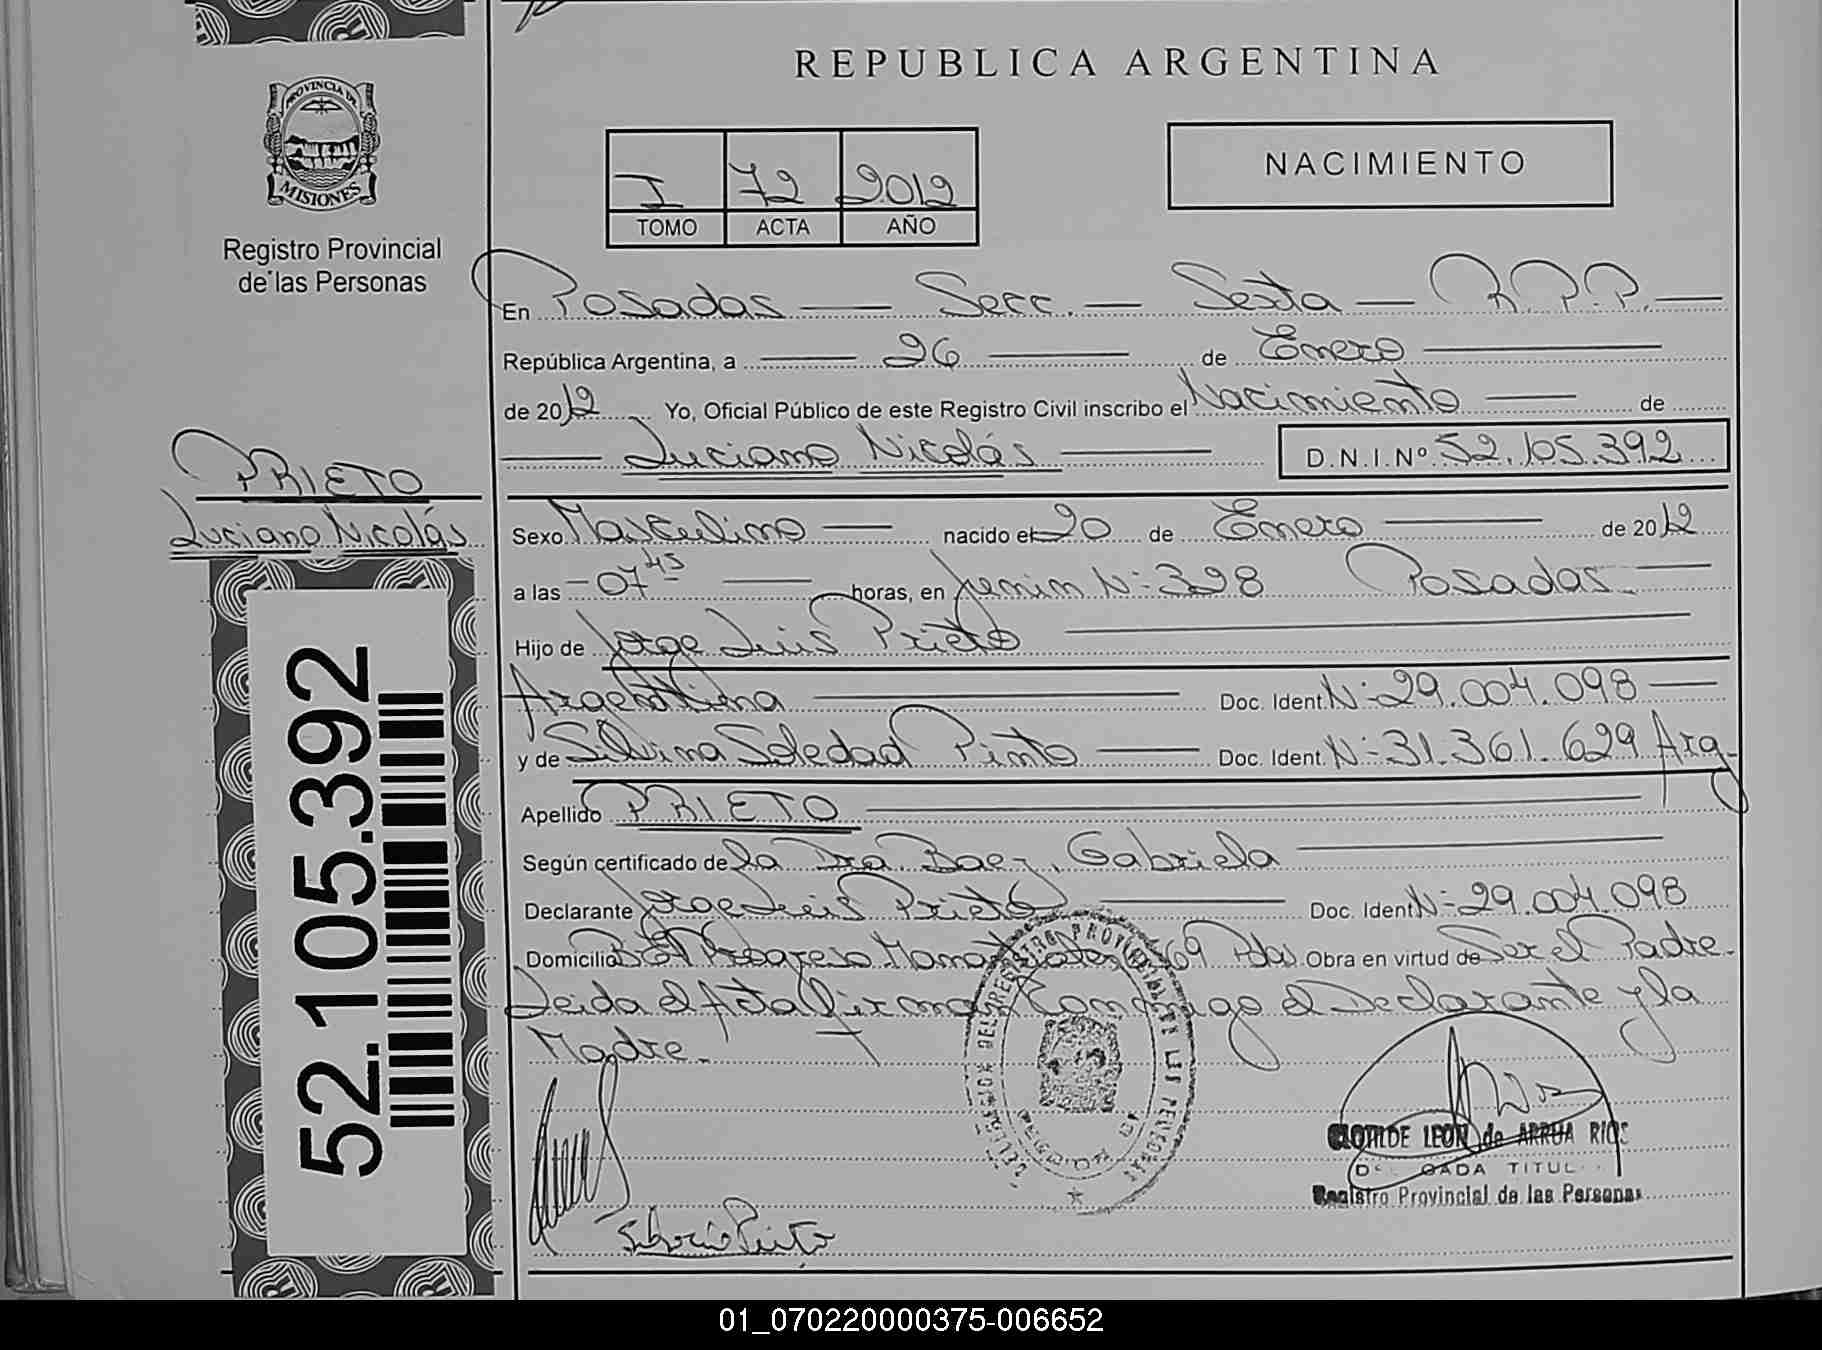 REPUBLICA ARGENTINA
PROVINCIA DE
MISIONES
Registro Provincial
de las Personas
I 72 2012
TOMO ACTA AÑO
NACIMIENTO
En Posadas — Secc. — Sexta — R.P.P. —
República Argentina, a — 26 — de Enero —
de 2012 Yo, Oficial Público de este Registro Civil inscribo el Nacimiento — de
— Luciano Nicolás — D.N.I.Nº 52.105.392
PRIETO
Luciano Nicolás
Sexo Masculino — nacido el 20 de Enero — de 2012
a las - 07 45 — horas, en Junin Nº 328 Posadas —
Hijo de Jorge Luis Prieto —
Argentina — Doc. Ident. Nº 29.004.098 —
y de Silvina Soledad Pinto — Doc. Ident. Nº 31.361.629 Arg
Apellido PRIETO —
Según certificado de la Dra. Baez, Gabriela —
Declarante Jorge Luis Prieto — Doc. Ident Nº 29.004.098
Domicilio Bº Progreso 69 Pdas Obra en virtud de Ser el Padre.
Leida el Acta firman Conmigo el Declarante y la
Madre.
52.105.392
CLOTILDE LEON de ARRUA RIOS
DELEGADA TITULAR
Registro Provincial de las Personas
01_070220000375-006652